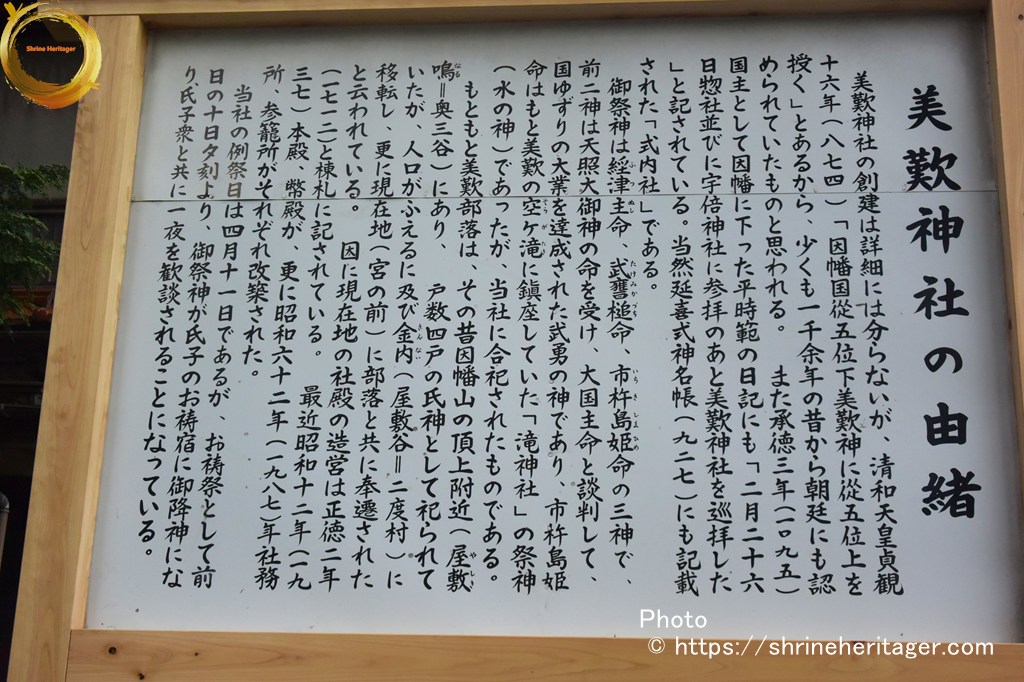 美歎神社の由緒
美歎神社の創建は詳細には分らないが、清和天皇貞観
十六年（八七四）「因幡国從五位下美歎神に從五位上を
授く」とあるから、少くも一千余年の昔から朝廷にも認
められていたものと思われる。　また承徳三年（一〇九五）
国主として因幡に下った平時範の日記にも「二月二十六
日惣社並びに宇倍神社に参拝のあと美歎神社を巡拝した
」と記されている。当然延喜式神名帳（九二七）にも記載
された「式内社」である。
御祭神は経津主命、武甕槌命、市杵島姫命の三神で、
前二神は天照大御神の命を受け、大国主命と談判して、
国ゆずりの大業を達成された武勇の神であり、市杵島姫
命はもと美歎の空ヶ滝に鎮座していた「滝神社」の祭神
（水の神）であったが、当社に合祀されたものである。
もともと美歎部落は、その昔因幡山の頂上附近（屋敷
鳴＝奥三谷）にあり、　戸数四戸の氏神として祀られて
いたが、人口がふえるに及び金内（屋敷谷＝二度村）に
移転し、更に現在地（宮の前）に部落と共に奉遷された
と云われている。　因に現在地の社殿の造営は正徳二年
（一七一二）と棟札に記されている。　最近昭和十二年（一九
三七）本殿、幣殿が、更に昭和六十二年（一九八七）年社務
所、参籠所がそれぞれ改築された。
当社の例祭日は四月十一日であるが、お祷祭として前
日の十日夕刻より、御祭神が氏子のお祷宿に御降神にな
り、氏子衆と共に一夜を歓談されることになっている。
Shrine Heritager
Photo
© https://shrineheritager.com